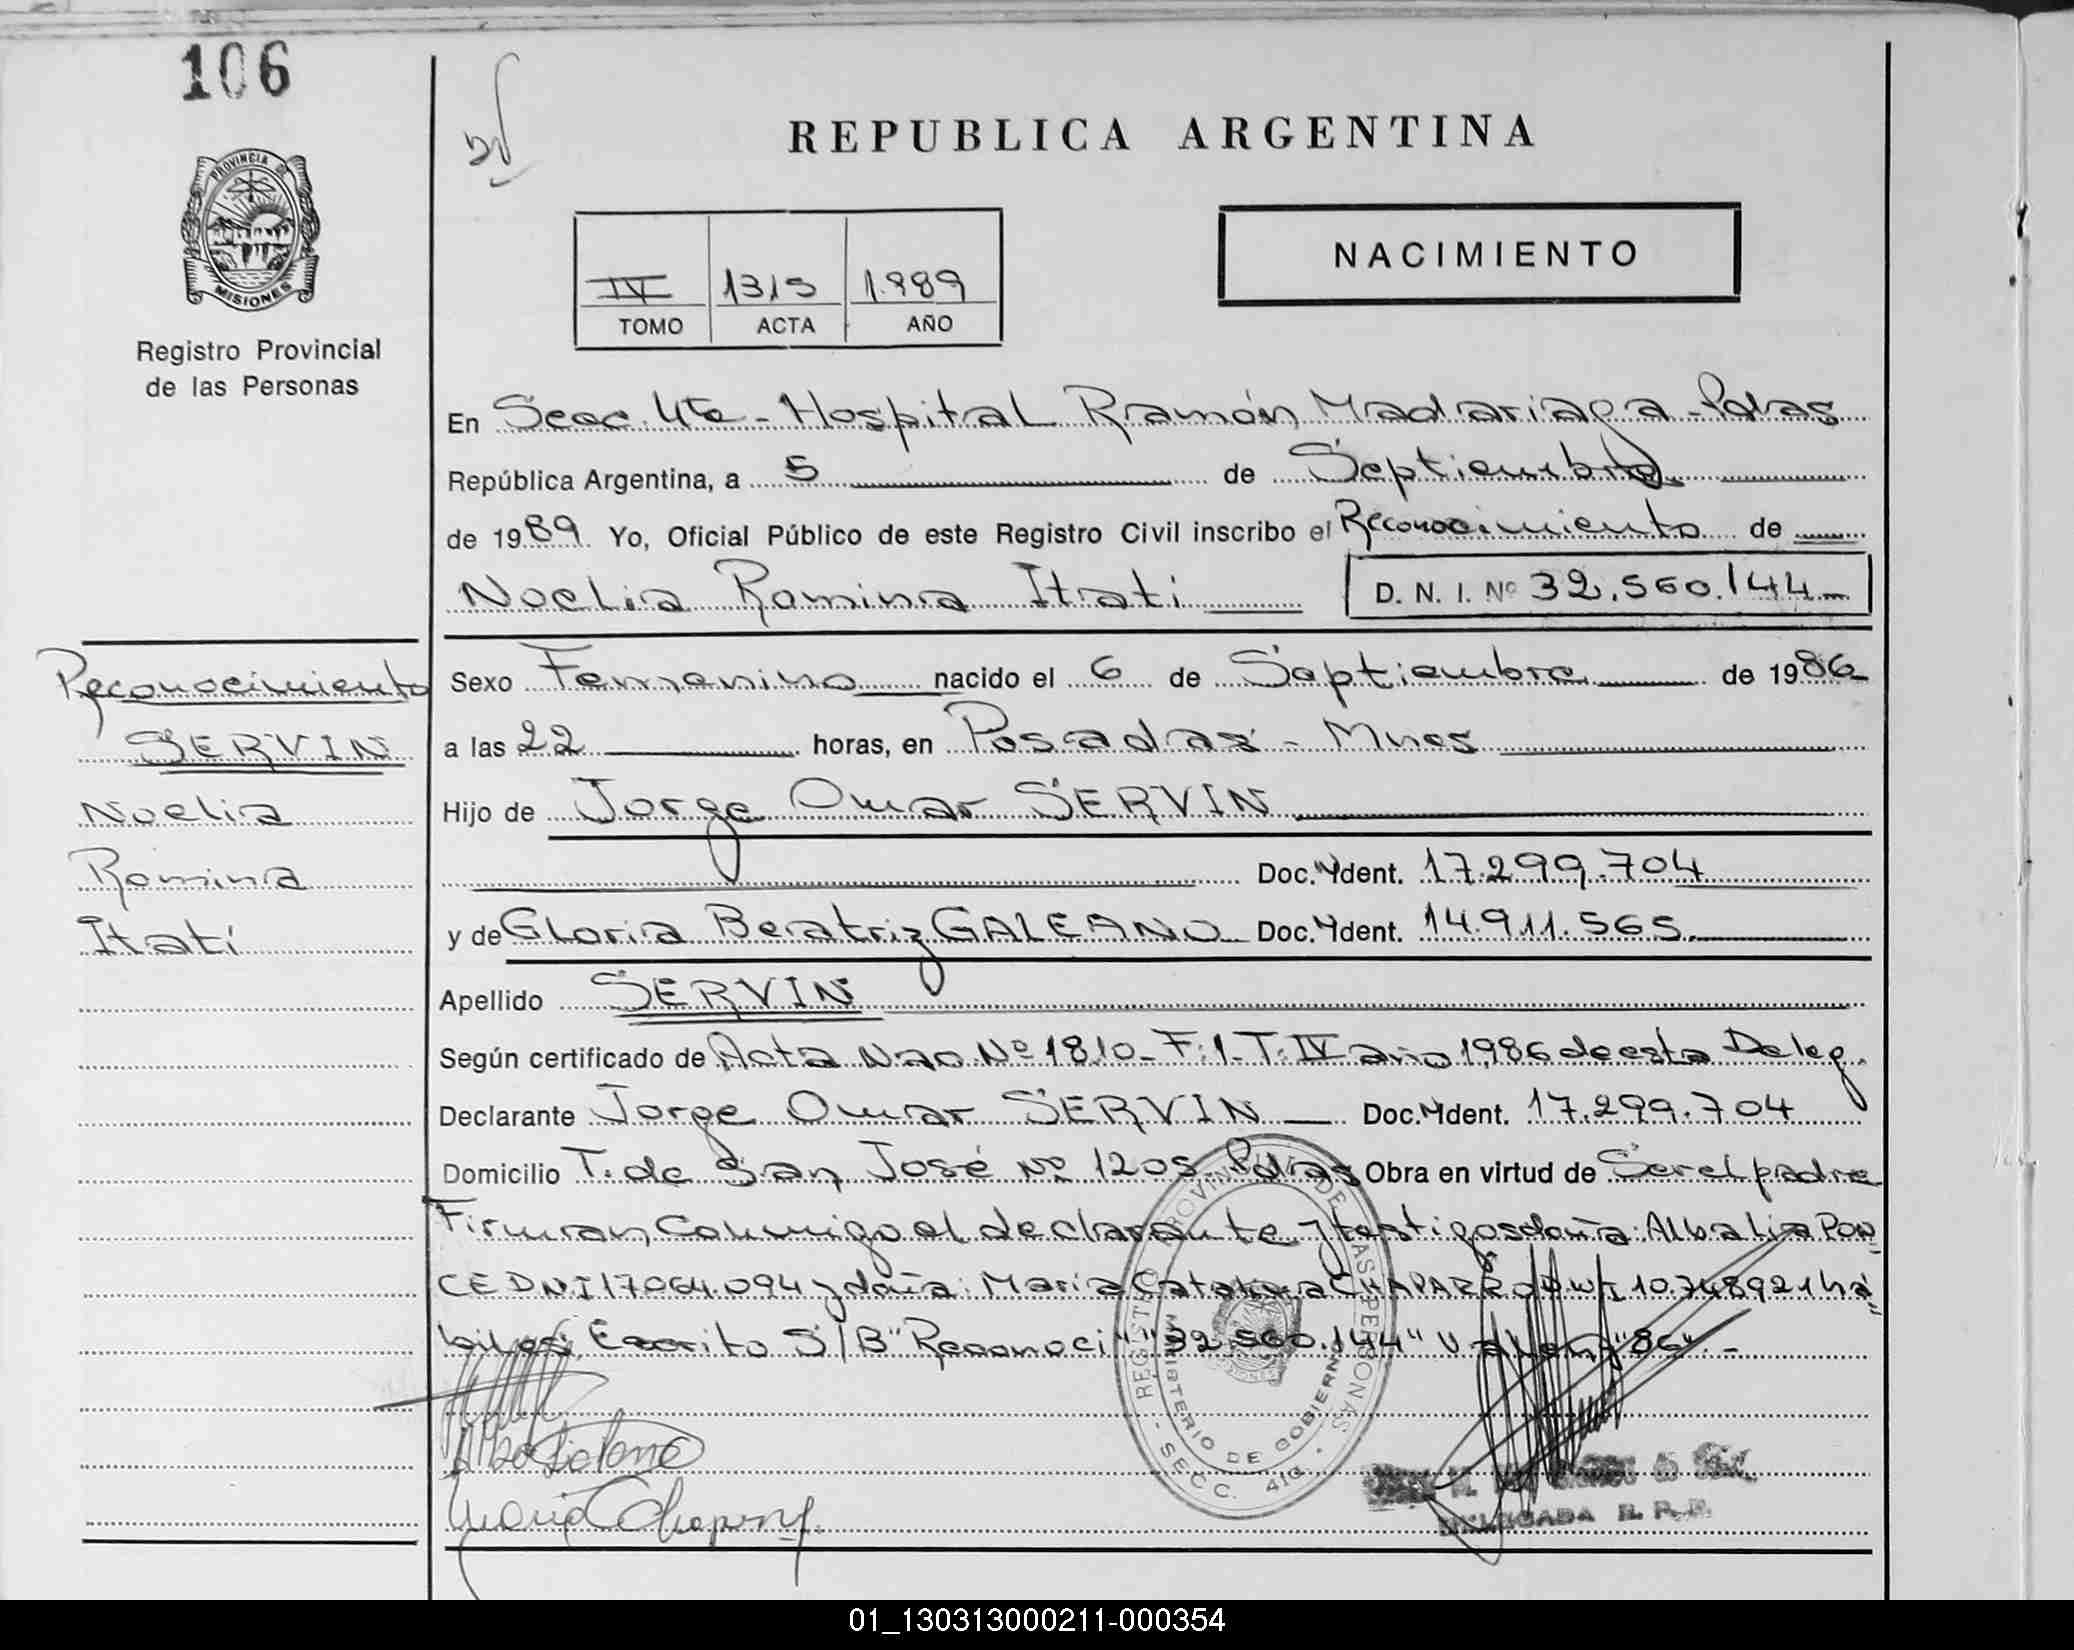 106
REPUBLICA ARGENTINA
PROVINCIA DE
MISIONES
Registro Provincial
de las Personas
IV 1315 1.989
TOMO ACTA AÑO
NACIMIENTO
En Secc. 4ta - Hospital Ramón Madariaga - Pdas
República Argentina, a 5 de Septiembre
de 1989. Yo, Oficial Público de este Registro Civil inscribo el Reconocimiento de
Noelia Romina Itati D. N. I. Nº 32.560.144
Reconocimiento
SERVIN
Noelia
Romina
Itatí
Sexo Femenino nacido el 6 de Septiembre de 1986
a las 22 horas, en Posadas - Mnes
Hijo de Jorge Omar SERVIN
Doc. Ydent. 17.299.704
y de Gloria Beatriz GALEANO Doc. Ydent. 14.911.565.
Apellido SERVIN
Según certificado de Acta Nac. Nº 1810 - F. 1 - T. IV año 1986 de esta Deleg.
Declarante Jorge Omar SERVIN Doc. Ydent. 17.299.704
Domicilio T. de San José Nº 1205 Pdas Obra en virtud de Ser el padre
Firman Conmigo el declarante y testigos doña: Alba Lia PON
CE DNI 17064.094 y doña: Maria Catalina CHAPARRO D.N.I 10.748921 há
biles; Escrito S/B "Reconoci" "32.560.144" Valen "86" -
REGISTRO PROVINCIAL DE LAS PERSONAS
MINISTERIO DE GOBIERNO
- SECC. 4ta. -
DELEGADA R. P. P.
01_130313000211-000354